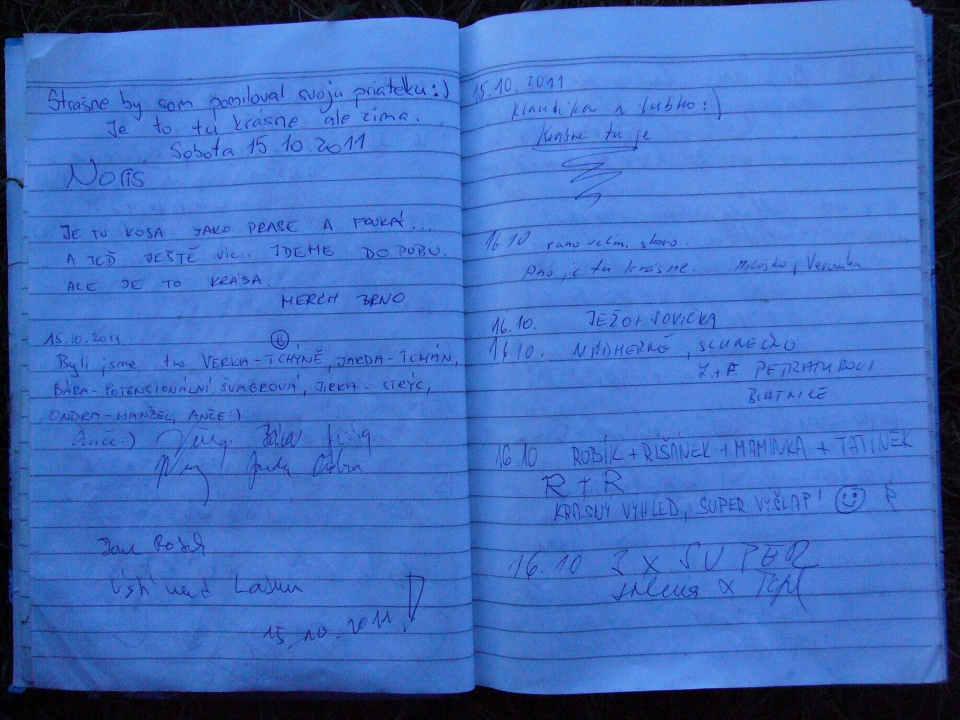 Strašne by som pomiloval svoju priateľku :)
Je to tu krásne ale zima.
Sobota 15.10.2011
Noris
JE TU KOSA JAKO PRASE A FOUKÁ...
A TEĎ JEŠTĚ VÍC. JDEME DO PUBU.
ALE JE TO KRÁSA.
MERCH BRNO
15.10.2011
Byli jsme tu VERKA-TCHÝNĚ, JARDA-TCHÁN,
BÁRA-POTENCIONÁLNÍ ŠVAGROVÁ, JIRKA-STRÝC,
ONDRA-MANŽEL, ANČE :)
Anče :)
Jan
Ústí nad Labem
15.10.2011!
15.10.2011
Klaudika a Lubko :)
Krásne tu je
16.10. ráno veľmi skoro.
je tu krásne. Veronika
16.10. JEŽO + SOVIČKA
16.10. NÁDHERNĚ, SLUNEČKO
Z.+F. PETRATUROVI
BLATNICE
16.10 ROBÍK + RÍŠÁNEK + MAMINKA + TATÍNEK
R + R
KRÁSNÝ VÝHLED, SUPER VÝŠLAP! R
16.10 3 x SUPER